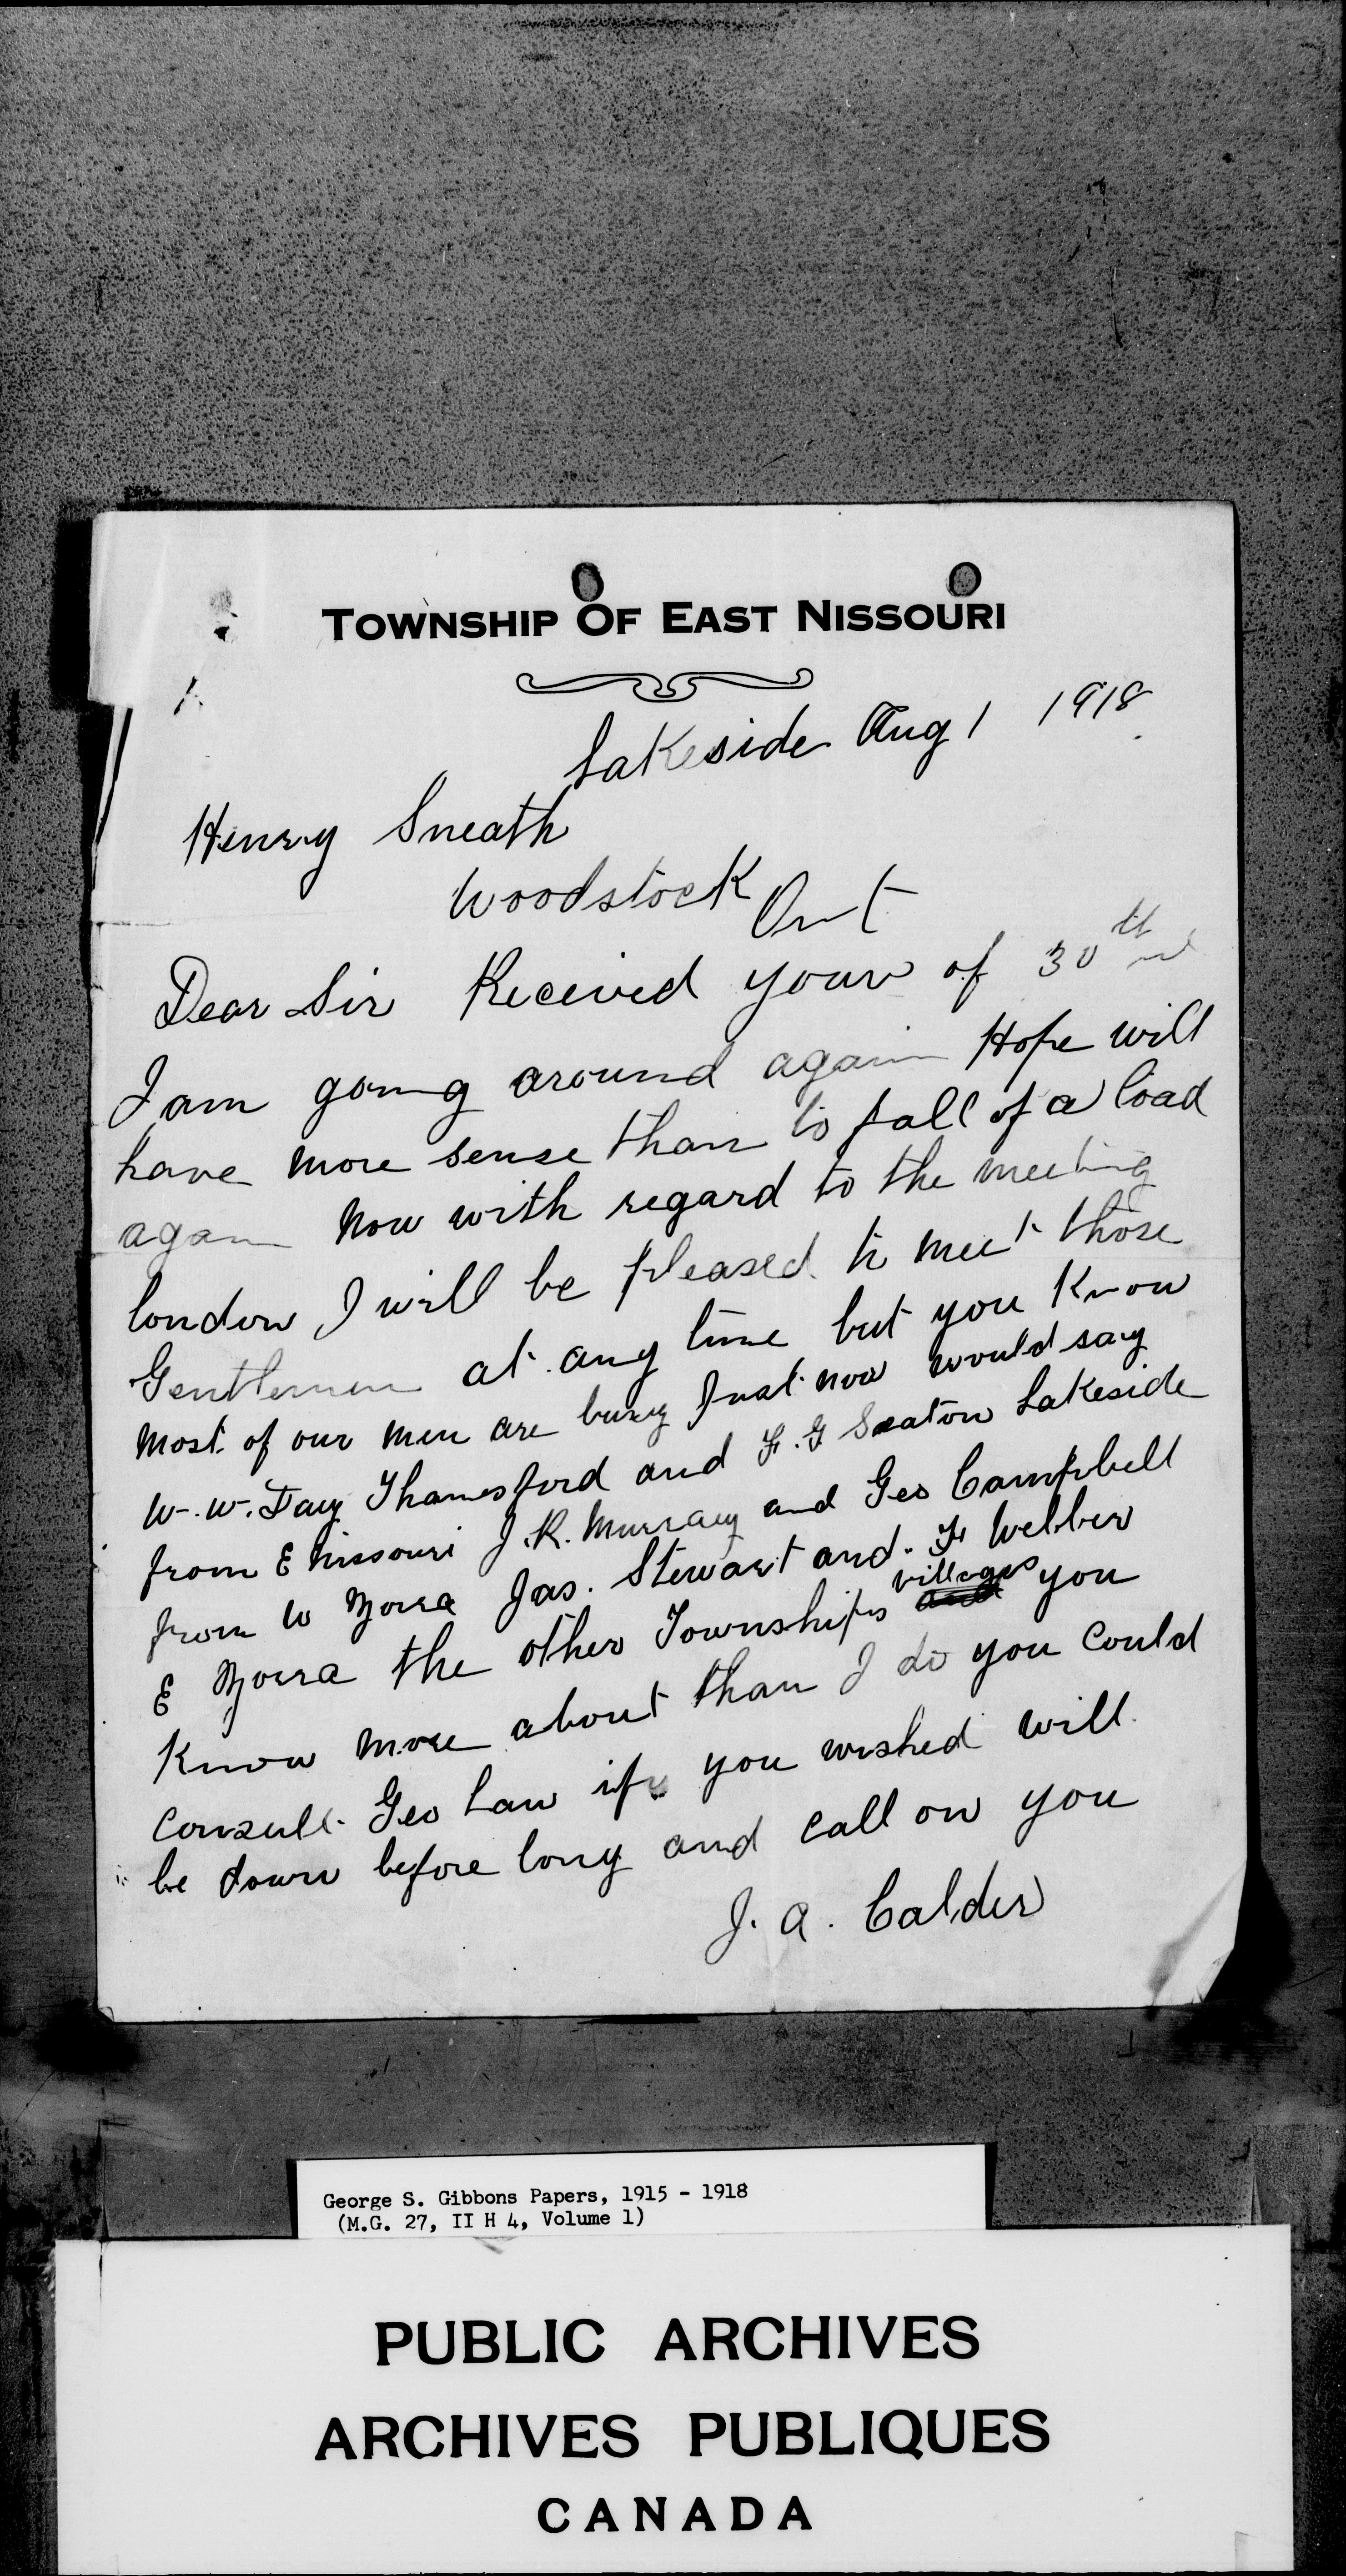 TOWNSHIP OF EAST NISSOURI
Lakeside Aug 1 1918
Henry Sneath
Woodstock Ont
Dear Sir Received your of 30th
I am going around again Hope will
have more sense than to fall of a load
again Now with regard to the meeting
london I will be pleased to meet those
Gentlemen at any time but you Know
most of our men are busy Just now would say
W. W. Day Thamesford and F. G Seaton Lakeside
from E Nissouri J. R. Murray and Geo Campbell
from W Zorra Jas. Stewart and F Webber
E Zorra the other Townships villages you
Know more about than I do you could
consult Geo Law if you wished will
be down before long and call on you
J. A. Calder
George S. Gibbons Papers, 1915 - 1918
(M.G. 27, II H 4, Volume 1)
PUBLIC ARCHIVES
ARCHIVES PUBLIQUES
CANADA